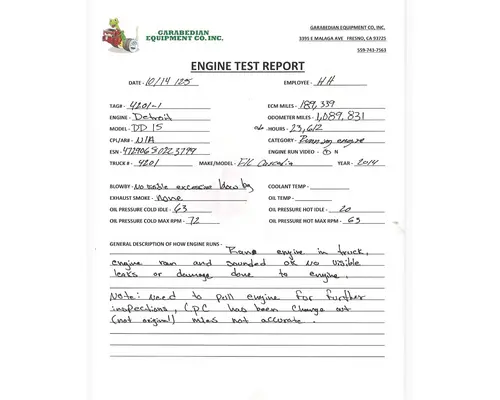 GARABEDIAN
EQUIPMENT CO. INC.
GARABEDIAN EQUIPMENT CO, INC.
3395 E MALAGA AVE FRESNO, CA 93725
559-743-7563
ENGINE TEST REPORT
DATE - 10/14/25 EMPLOYEE - HH
TAG# - 4201-1 ECM MILES - 189,339
ENGINE - Detroit ODOMETER MILES - 1,089,831
MODEL - DD15 HOURS - 23,612
CPL/AR# - N/A CATEGORY - Running engine
ESN - 472906S0223799 ENGINE RUN VIDEO - Y N
TRUCK # - 4201 MAKE/MODEL - F/L Cascadia YEAR - 2014
BLOWBY - No visible excessive blow by COOLANT TEMP -
EXHAUST SMOKE - none OIL TEMP -
OIL PRESSURE COLD IDLE - 63 OIL PRESSURE HOT IDLE - 20
OIL PRESSURE COLD MAX RPM - 72 OIL PRESSURE HOT MAX RPM - 63
GENERAL DESCRIPTION OF HOW ENGINE RUNS - engine in truck,
engine ran and sounded ok no visible
leaks or damage done to engine.
Note: need to pull engine for further
inspections, CPC has been change out
(not original) miles not accurate.